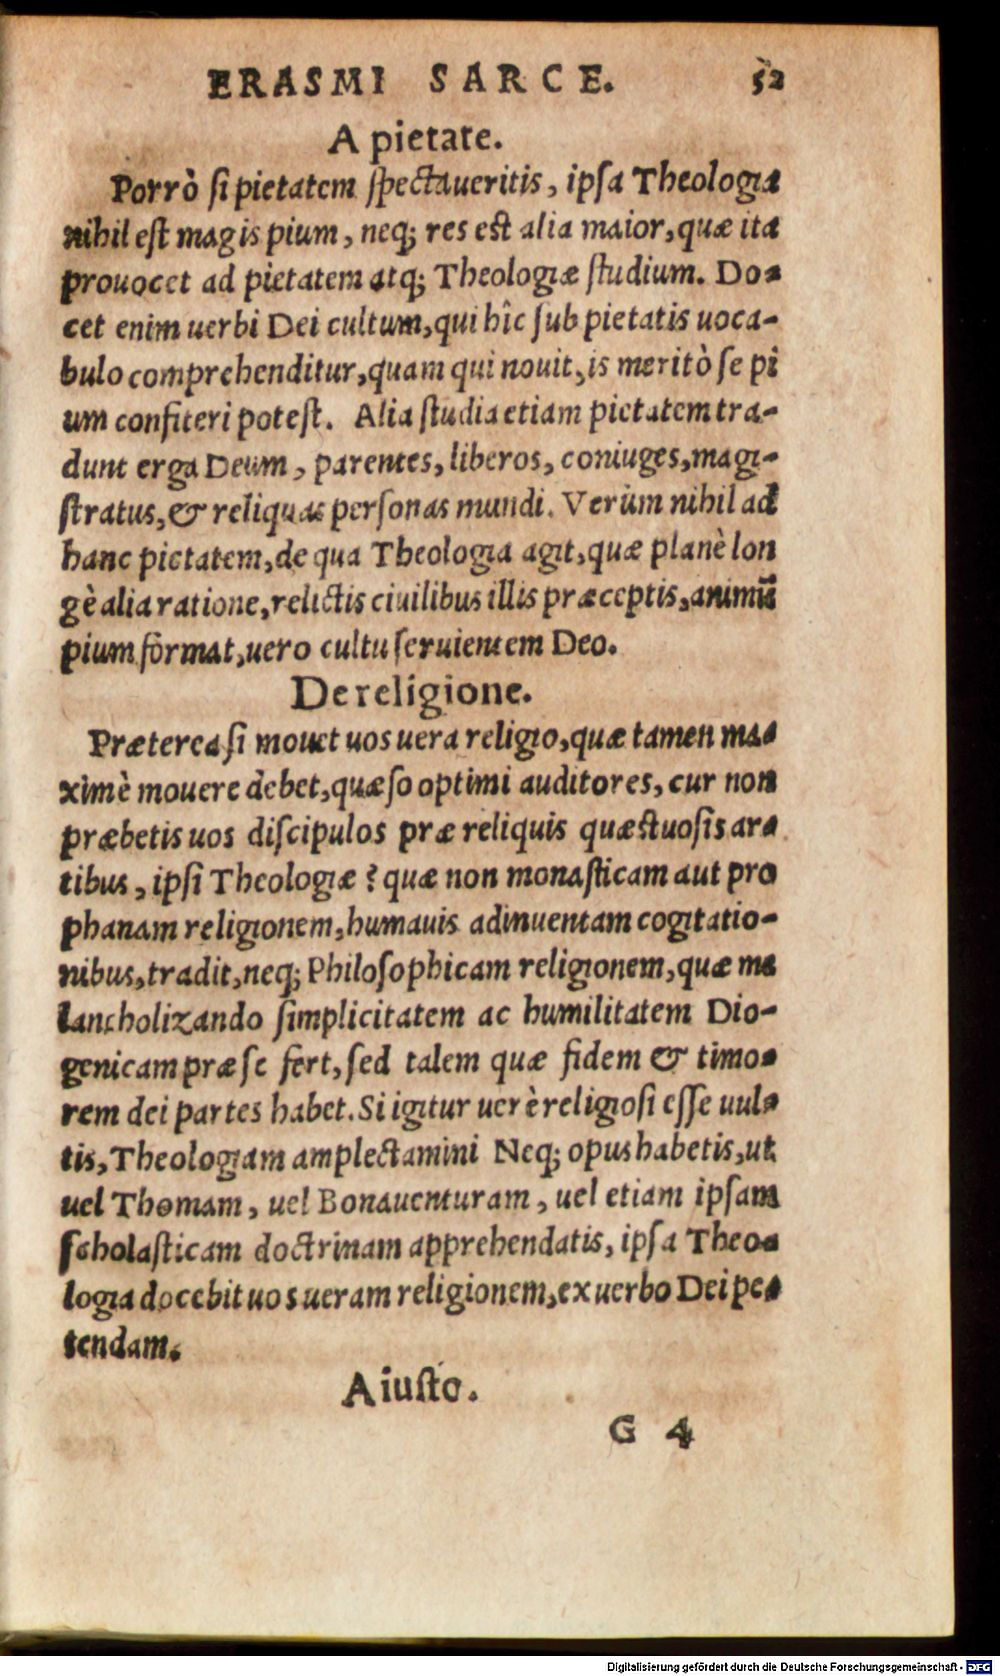 ERASMI SARCE. 52
A pietate.
Porrò si pietatem spectaueritis, ipsa Theologia
nihil est magis pium, neq; res est alia maior, quæ ita
prouocet ad pietatem atq; Theologiæ studium. Do-
cet enim uerbi Dei cultum, qui hîc sub pietatis uoca-
bulo comprehenditur, quam qui nouit, is meritò se pi
um confiteri potest. Alia studia etiam pietatem tra-
dunt erga Deum, parentes, liberos, coniuges, magi-
stratus, & reliquas personas mundi. Verùm nihil ad
hanc pietatem, de qua Theologia agit, quæ planè lon
gè alia ratione, relictis ciuilibus illis præceptis, animū
pium format, uero cultu seruientem Deo.
De religione.
Præterea si mouet uos uera religio, quæ tamen ma-
ximè mouere debet, quæso optimi auditores, cur non
præbetis uos discipulos præ reliquis quæstuosis ar-
tibus, ipsi Theologiæ? quæ non monasticam aut pro
phanam religionem, humauis adinuentam cogitatio-
nibus, tradit, neq; Philosophicam religionem, quæ me
lancholizando simplicitatem ac humilitatem Dio-
genicam præ se fert, sed talem quæ fidem & timo-
rem dei partes habet. Si igitur uerè religiosi esse uul-
tis, Theologiam amplectamini Neq; opus habetis, ut
uel Thomam, uel Bonauenturam, uel etiam ipsam
scholasticam doctrinam apprehendatis, ipsa Theo-
logia docebit uos ueram religionem, ex uerbo Dei pe-
tendam.
A iusto.
G 4
Digitalisierung gefördert durch die Deutsche Forschungsgemeinschaft - DFG